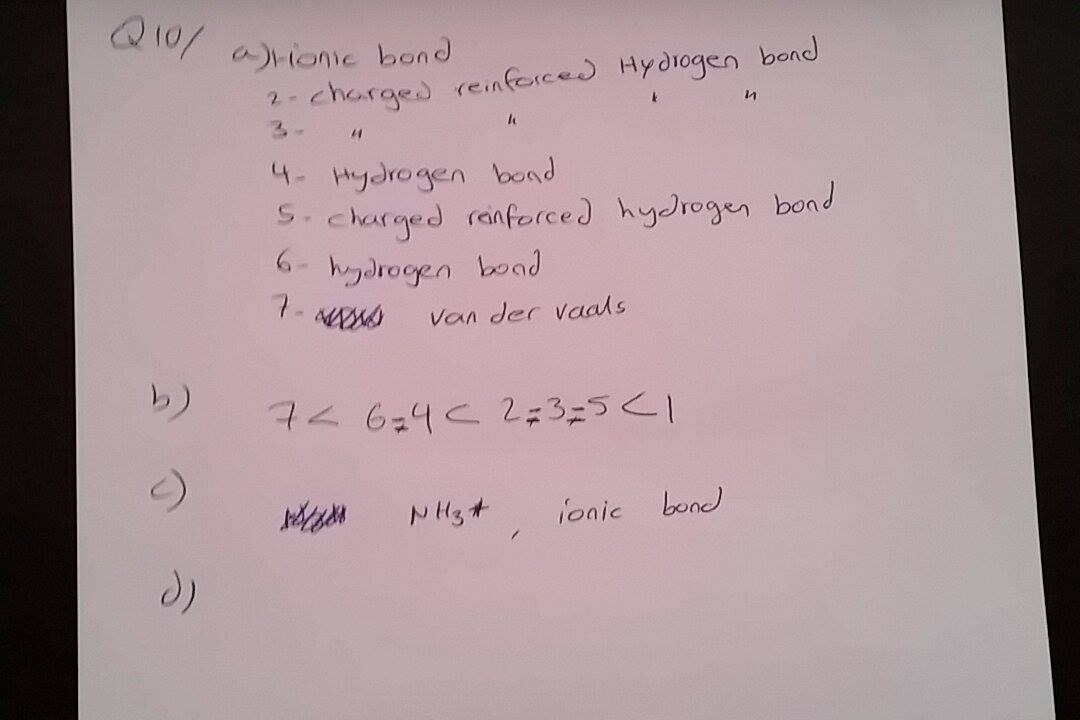 Q10/ a) 1-ionic bond
2- charged reinforced Hydrogen bond
3- " " " "
4- Hydrogen bond
5- charged reinforced hydrogen bond
6- hydrogen bond
7- van der vaals
b) 7 < 6=4 < 2=3=5 < 1
c) NH3+, ionic bond
d)